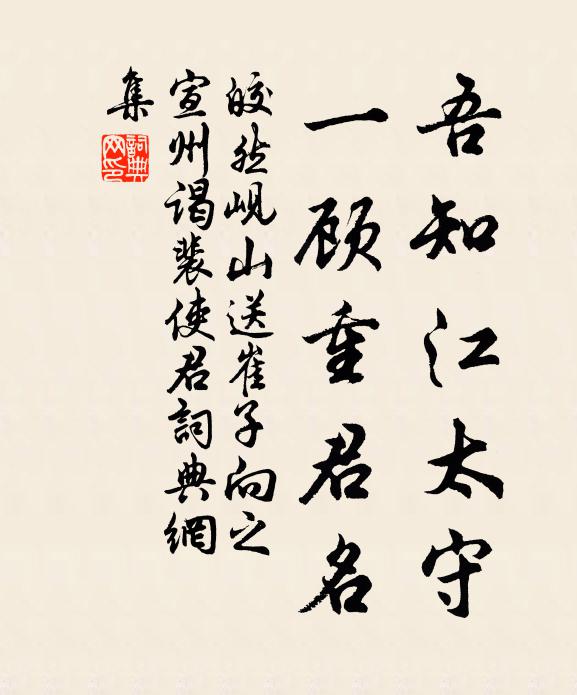 吾知江太守
一顾重君名
皎然峴山送崔子向之
宣州謁裴使君詞典網
集
詞典网印